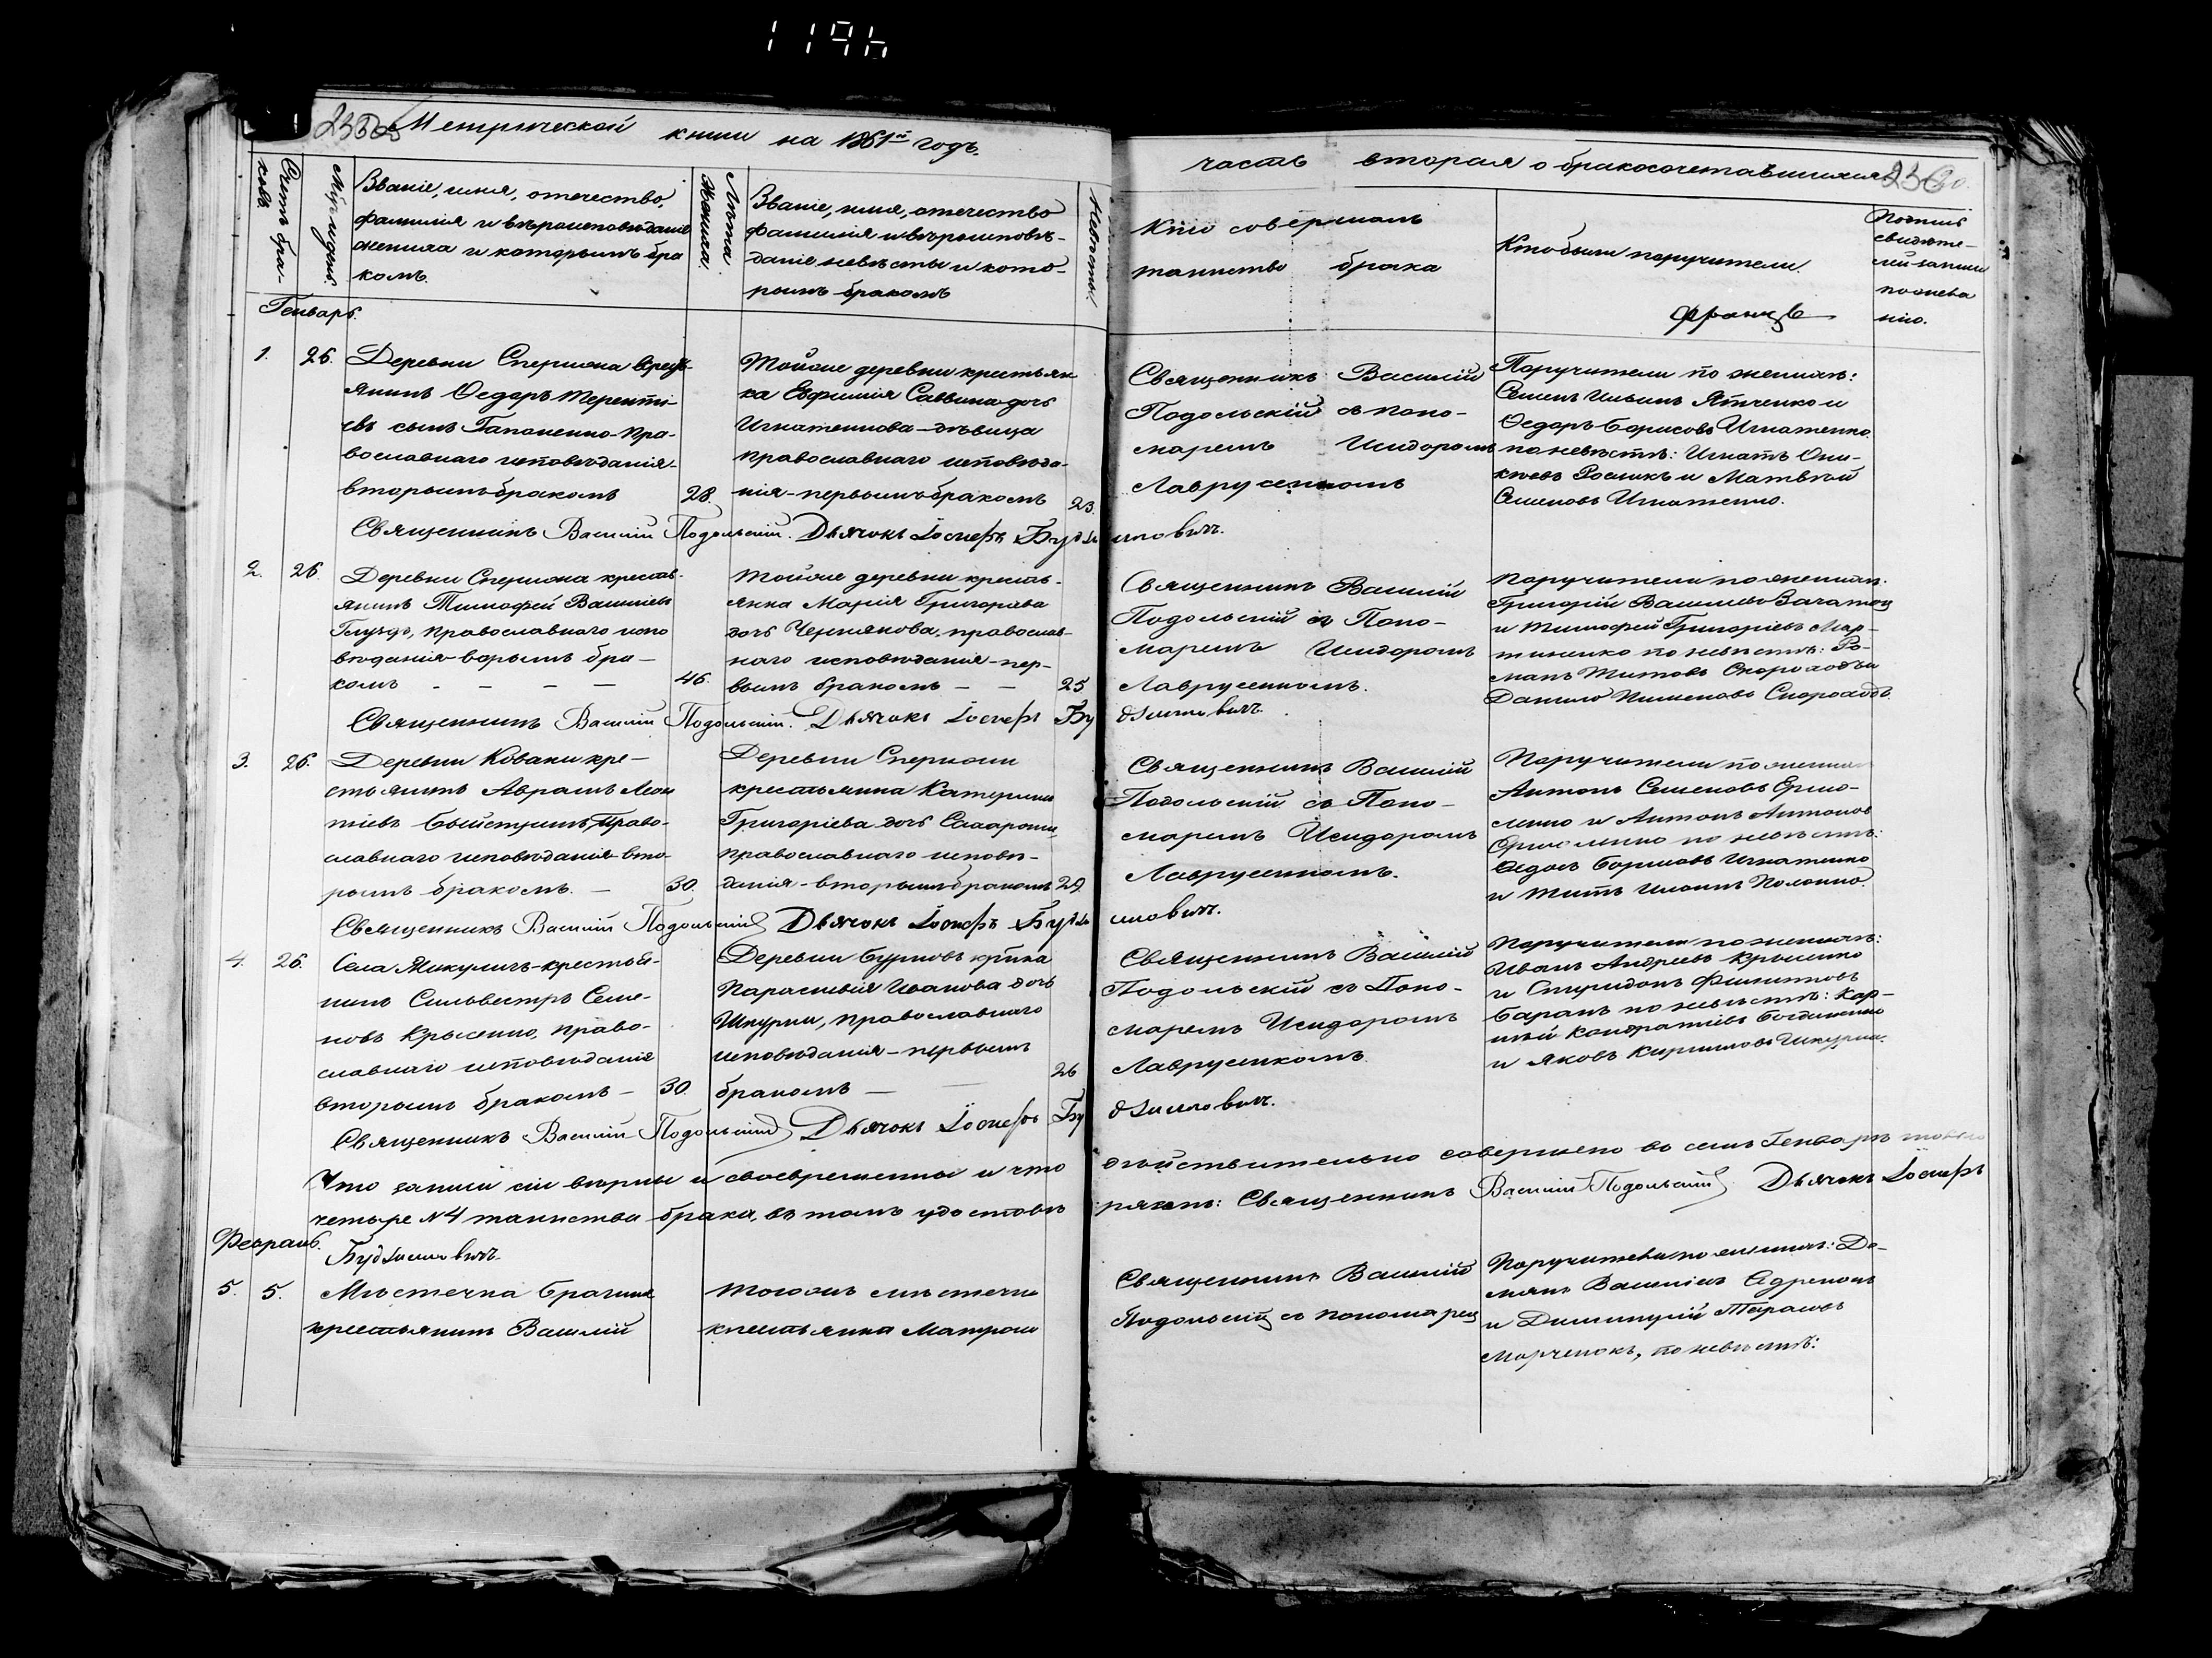 Метрической книги на 1861й годъ.
часть вторая о бракосочетавшихся
Счетъ бра-
ковъ.
Мѣс. и день.
Званіе, имя, отечество,
фамилія и вѣроисповѣданіе
жениха и которымъ бра
комъ.
Лѣта
жениха.
Званіе, имя, отечество
фамилія и вѣроисповѣ-
даніе невѣсты и кото-
рымъ бракомъ
Невѣсты.
Кто совершалъ
таинство брака
Кто были поручители.
Подпись
свидѣте-
лей записи
по жела
нію.
Генварь.
1.
26.
Деревни Сперижа крестъ-
янинъ Ѳедоръ Теренті-
евъ сынъ Гапоненко-пра-
вославнаго исповѣданія-
вторымъ бракомъ
28.
Тойже деревни крестьян
ка Евфимія Саввина дочь
Игнатенкова-дѣвица
православнаго исповѣда-
нія-первымъ бракомъ
23.
Священникъ Василій
Подольскій съ поно-
маремъ Исидоромъ
Лаврусенкомъ
Поручители по женихѣ:
Семенъ Ильинъ Ятченко и
Ѳедоръ Борисовъ Игнатенко
по невѣстѣ: Игнатъ
и Матвѣй
Семеновъ Игнатенко.
Священникъ Василій Подольскій. Дьячокъ Іосифъ Будзиловичъ.
2.
26.
Деревни Сперижа кресть-
янинъ Тимофей Васильевъ
православнаго испо
вѣданія-ворымъ бра-
комъ - - - -
46.
тойже деревни кресть-
янка Марія Григорьева
дочь Чернякова, православ-
наго исповѣданія-пер-
вымъ бракомъ - -
25
Священникъ Василій
Подольскій съ Поно-
маремъ Исидоромъ
Лаврусенкомъ.
поручители по женихѣ.
Григорій Васильевъ
и Тимофей Григоріевъ Мар-
тиненко по невѣстѣ: Ро-
манъ Титовъ Скороходъ и
Данило Пименовъ Скороходъ.
Священникъ Василій Подольскій. Дьячокъ Іосифъ Будзиловичъ.
3.
26.
Деревни Коваки кре-
стьянинъ Аврамъ Леон
тіевъ право-
славнаго исповѣданія вто-
рымъ бракомъ. -
30.
Деревни Сперижи
крестьянка Катерина
Григоріева дочь
православнаго исповѣ-
данія-вторымъ бракомъ
29.
Священникъ Василій
Подольскій съ Поно-
маремъ Исидоромъ
Лаврусенкомъ.
Поручители по женихѣ
Антонъ Семеновъ Ермо-
ленко и Антонъ Антоновъ
Ермоленко по невѣстѣ:
Ѳедоръ Борисовъ Игнатенко
и Титъ
Священникъ Василій Подольскій Дьячокъ Іосифъ Будзиловичъ.
4.
26.
Села Микуличъ-крестья-
нинъ Сильвестръ Семе-
новъ Крысенко, право-
славнаго исповѣданія
вторымъ бракомъ-
30.
Деревни Бурковъ
Параскевія Иванова дочь
Шкурки, православнаго
исповѣданія-первымъ
бракомъ -
26
Священникъ Василій
Подольскій съ Поно-
маремъ Исидоромъ
Лаврусенкомъ.
поручители по женихѣ:
Иванъ Андреевъ Крысенко
и Спиридонъ Филиповъ
Баранъ по невѣстѣ: Кар-
пъ Кондратіевъ
и Яковъ Кириловъ
Священникъ Василій Подольскій Дьячокъ Іосифъ Будзиловичъ.
Что записи сіи вѣрны и своевременны и что дѣйствительно совершено во семъ Генварѣ
четыре №4 таинства брака, въ томъ удостовѣряемъ: Священникъ Василій Подольскій Дьячокъ Іосифъ
Будзиловичъ.
Февраль.
5.
5.
Мѣстечка Брагина
крестьянинъ Василій
тогожъ мѣстечка
крестьянка Матрона
Священникъ Василій
Подольскій съ пономарем
Поручители по женихѣ: До-
и Димитрій Тарасовъ
Марченокъ, по невѣстѣ: